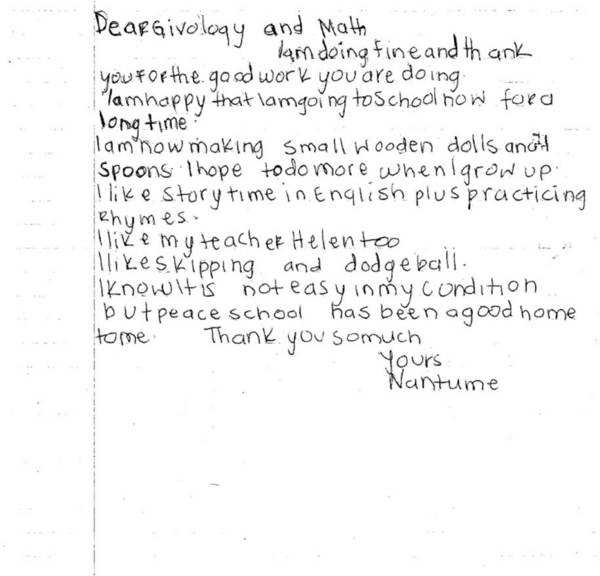 Dear Givology and Math
I am doing fine and thank
you for the good work you are doing.
I am happy that I am going to school now for a
long time.
I am now making small wooden dolls and
spoons. I hope to do more when I grow up.
I like story time in English plus practicing
Rhymes.
I like my teacher Helen too
I like skipping and dodgeball.
I know It is not easy in my condition
but peace school has been a good home
to me. Thank you so much
Yours
Nantume